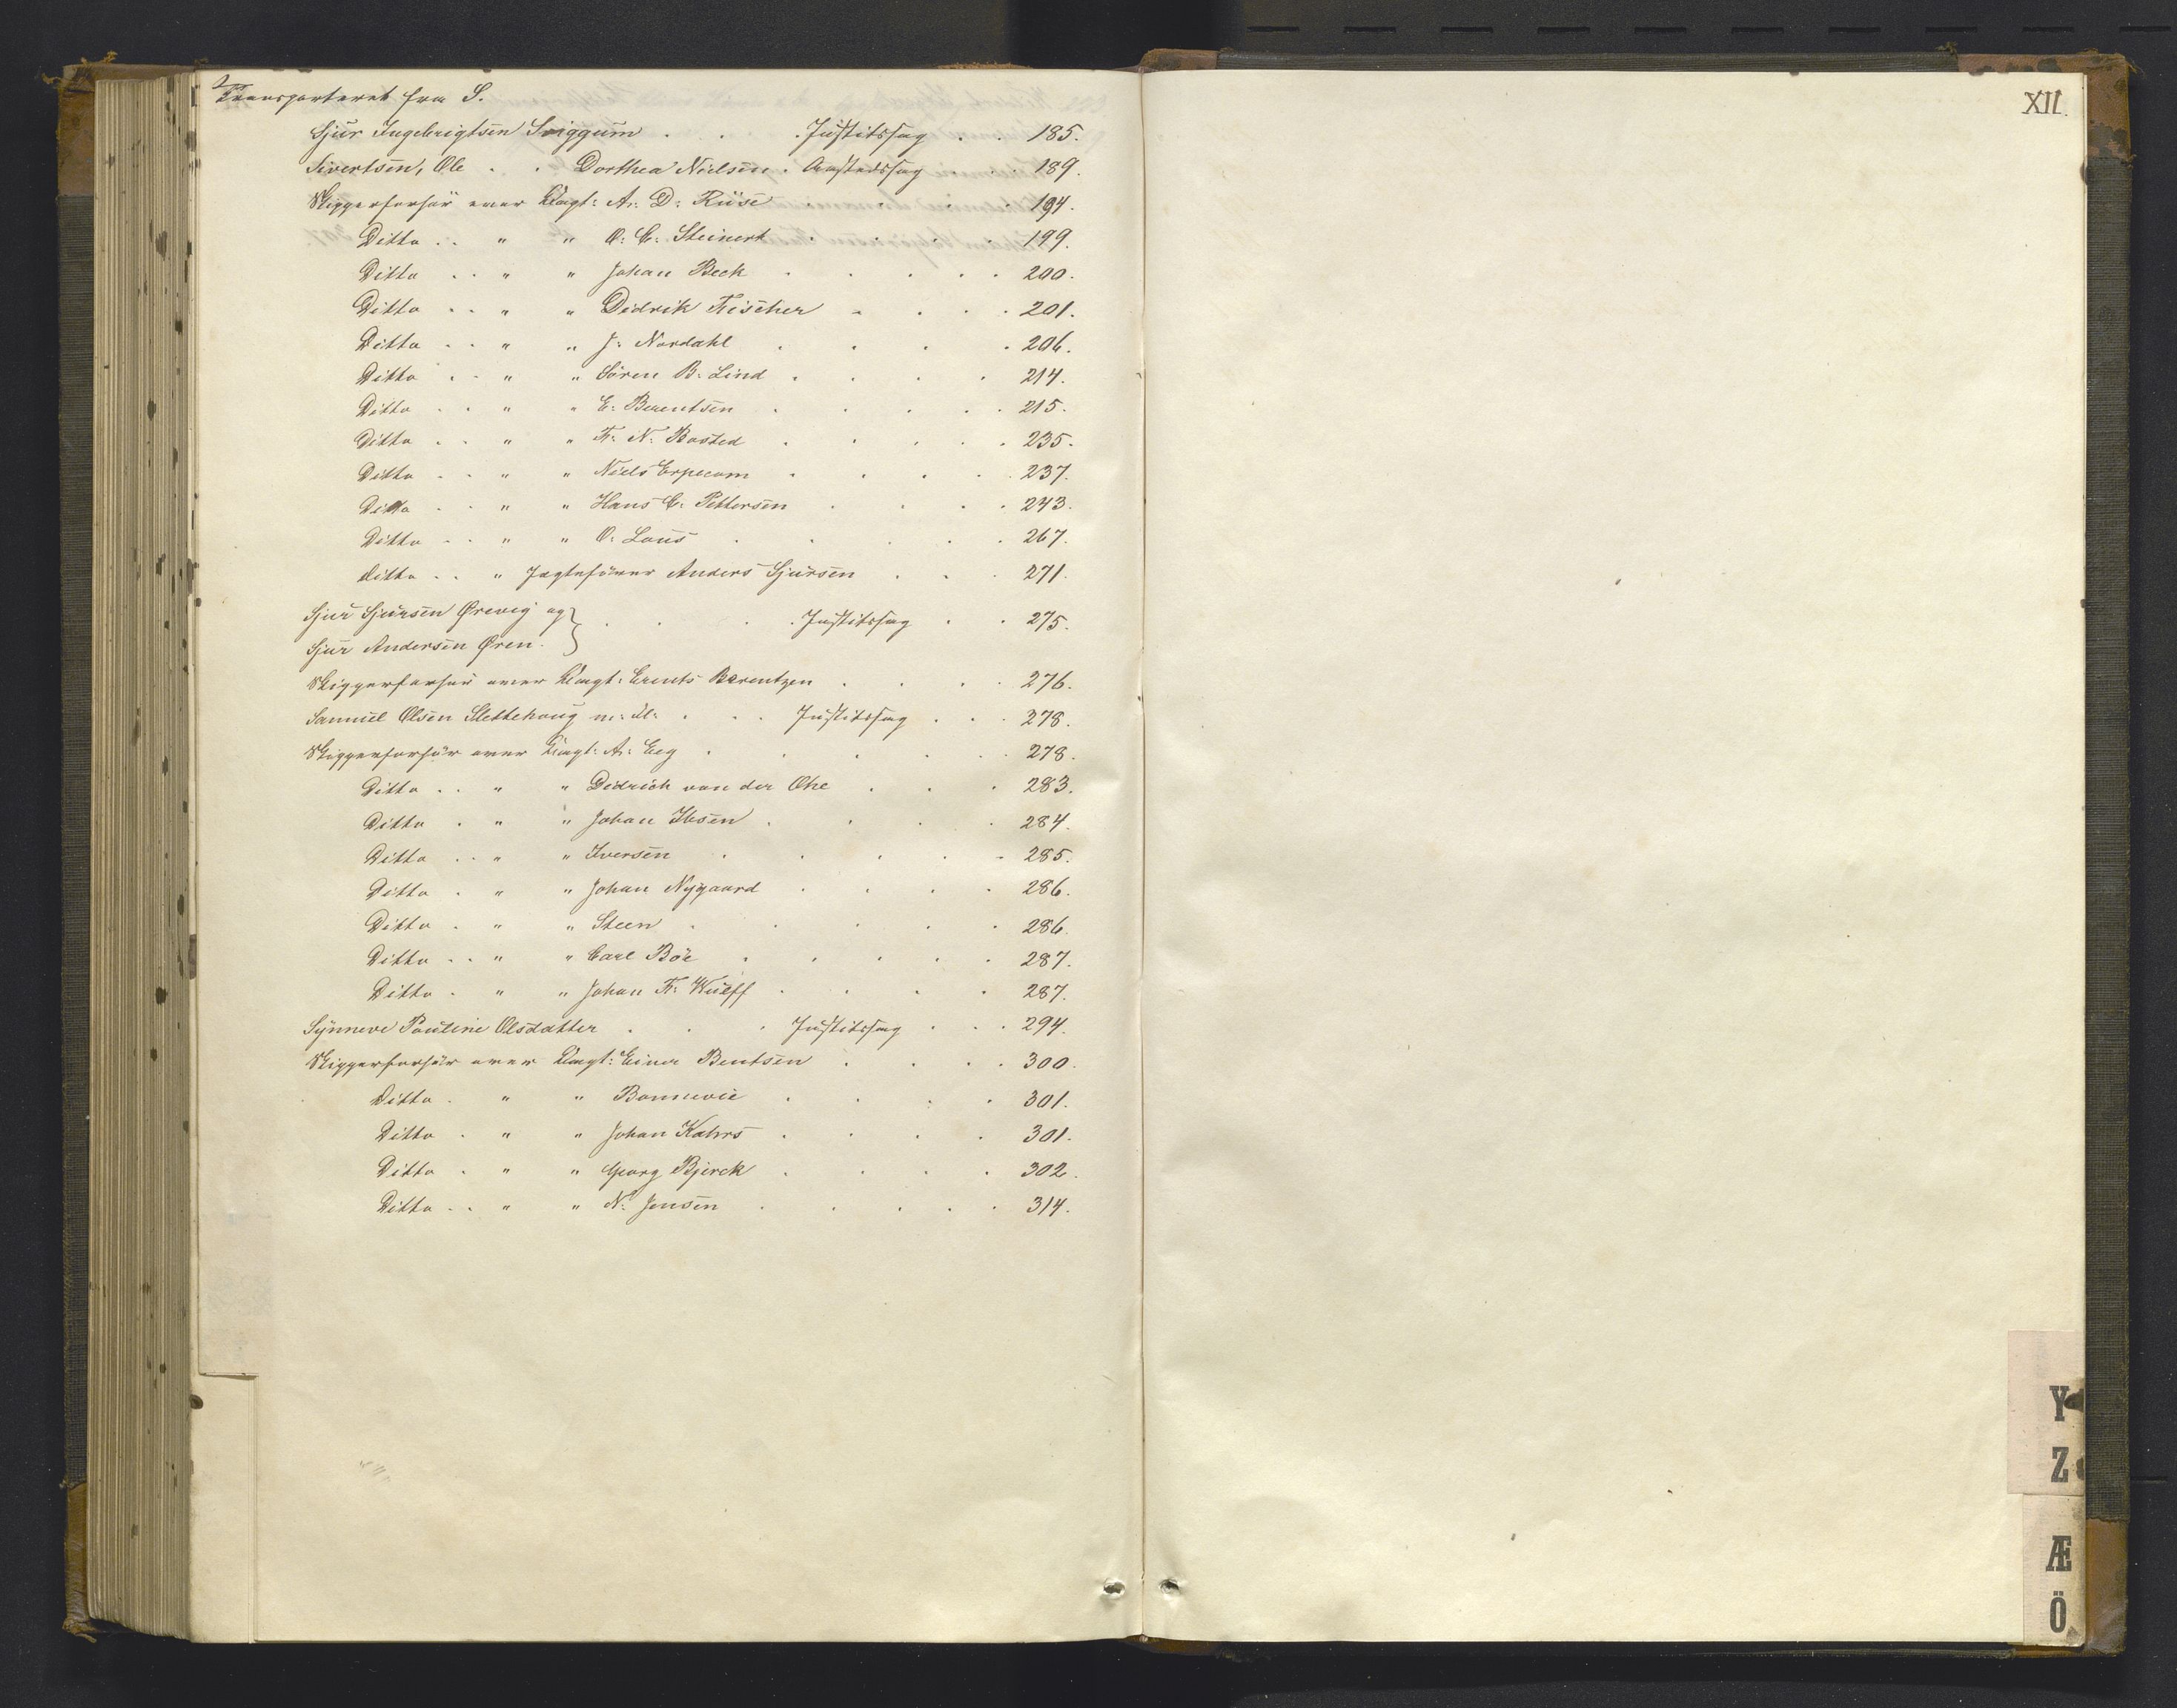 Transporteret fra S.
Sjur Ingebrigtsen Sviggum . . . Justitssag . . 185.
Sivertsen, Ole . . Dorthea Nielsen . Aastedssag . . 189.
Skipperforhör over Capt: A. D. Rüse . . . . 194.
Ditto . . " " O. C. Steinert . . . . 199.
Ditto . . " " Johan Beck . . . . . 200.
Ditto . . " " Didrik Fischer . . . . 201.
Ditto . . " " J. Nordahl . . . . 206.
Ditto . . " " Sören B. Lind . . . . 214.
Ditto . . " " E. Berentsen . . . . . 215.
Ditto . . " " Fr. N. Borsted . . . . . 235.
Ditto . . " " Niels Erpecom . . . . . 237.
Ditto . . " " Hans C. Pettersen . . . . 243.
Ditto . . " " O. Lous . . . . . 267.
ditto . . " Jagtefører Anders Sjursen . . . 271.
Sjur Sjursen Ørevig og } . . . Justitssag . . 275.
Sjur Andersen Øren.
Skipperforhör over Capt: Bernts Barentzen . . . . 276.
Samuel Olsen Slettehoug m: fl: . . . Justitssag . . . 278.
Skipperforhör over Capt: A. Eeg . . . . . 278.
Ditto . . " " Didrich von der Ohe . . . 283.
Ditto . " " Johan Ibsen . . . . 284.
Ditto . . " " Iversen . . . . . 285.
Ditto . " " Johan Nygaard . . . . 286.
Ditto . " " Steen . . . . . 286.
Ditto . . " " Carl Böe . . . . . 287.
Ditto . " " Johan Fr. Wulff . . . . 287.
Synneve Pauline Olsdatter . . . Justitssag . . . 294.
Skipperforhör over Capt: Einer Bentsen . . . . 300.
Ditto . " " Bonnevie . . . . 301.
Ditto . " " Johan Kahrs . . . . 301.
Ditto . " " Georg Bjerck . . . . 302.
Ditto . . " " N. Jensen . . . . . 314.
XII.
Y
Z
Æ
Ö